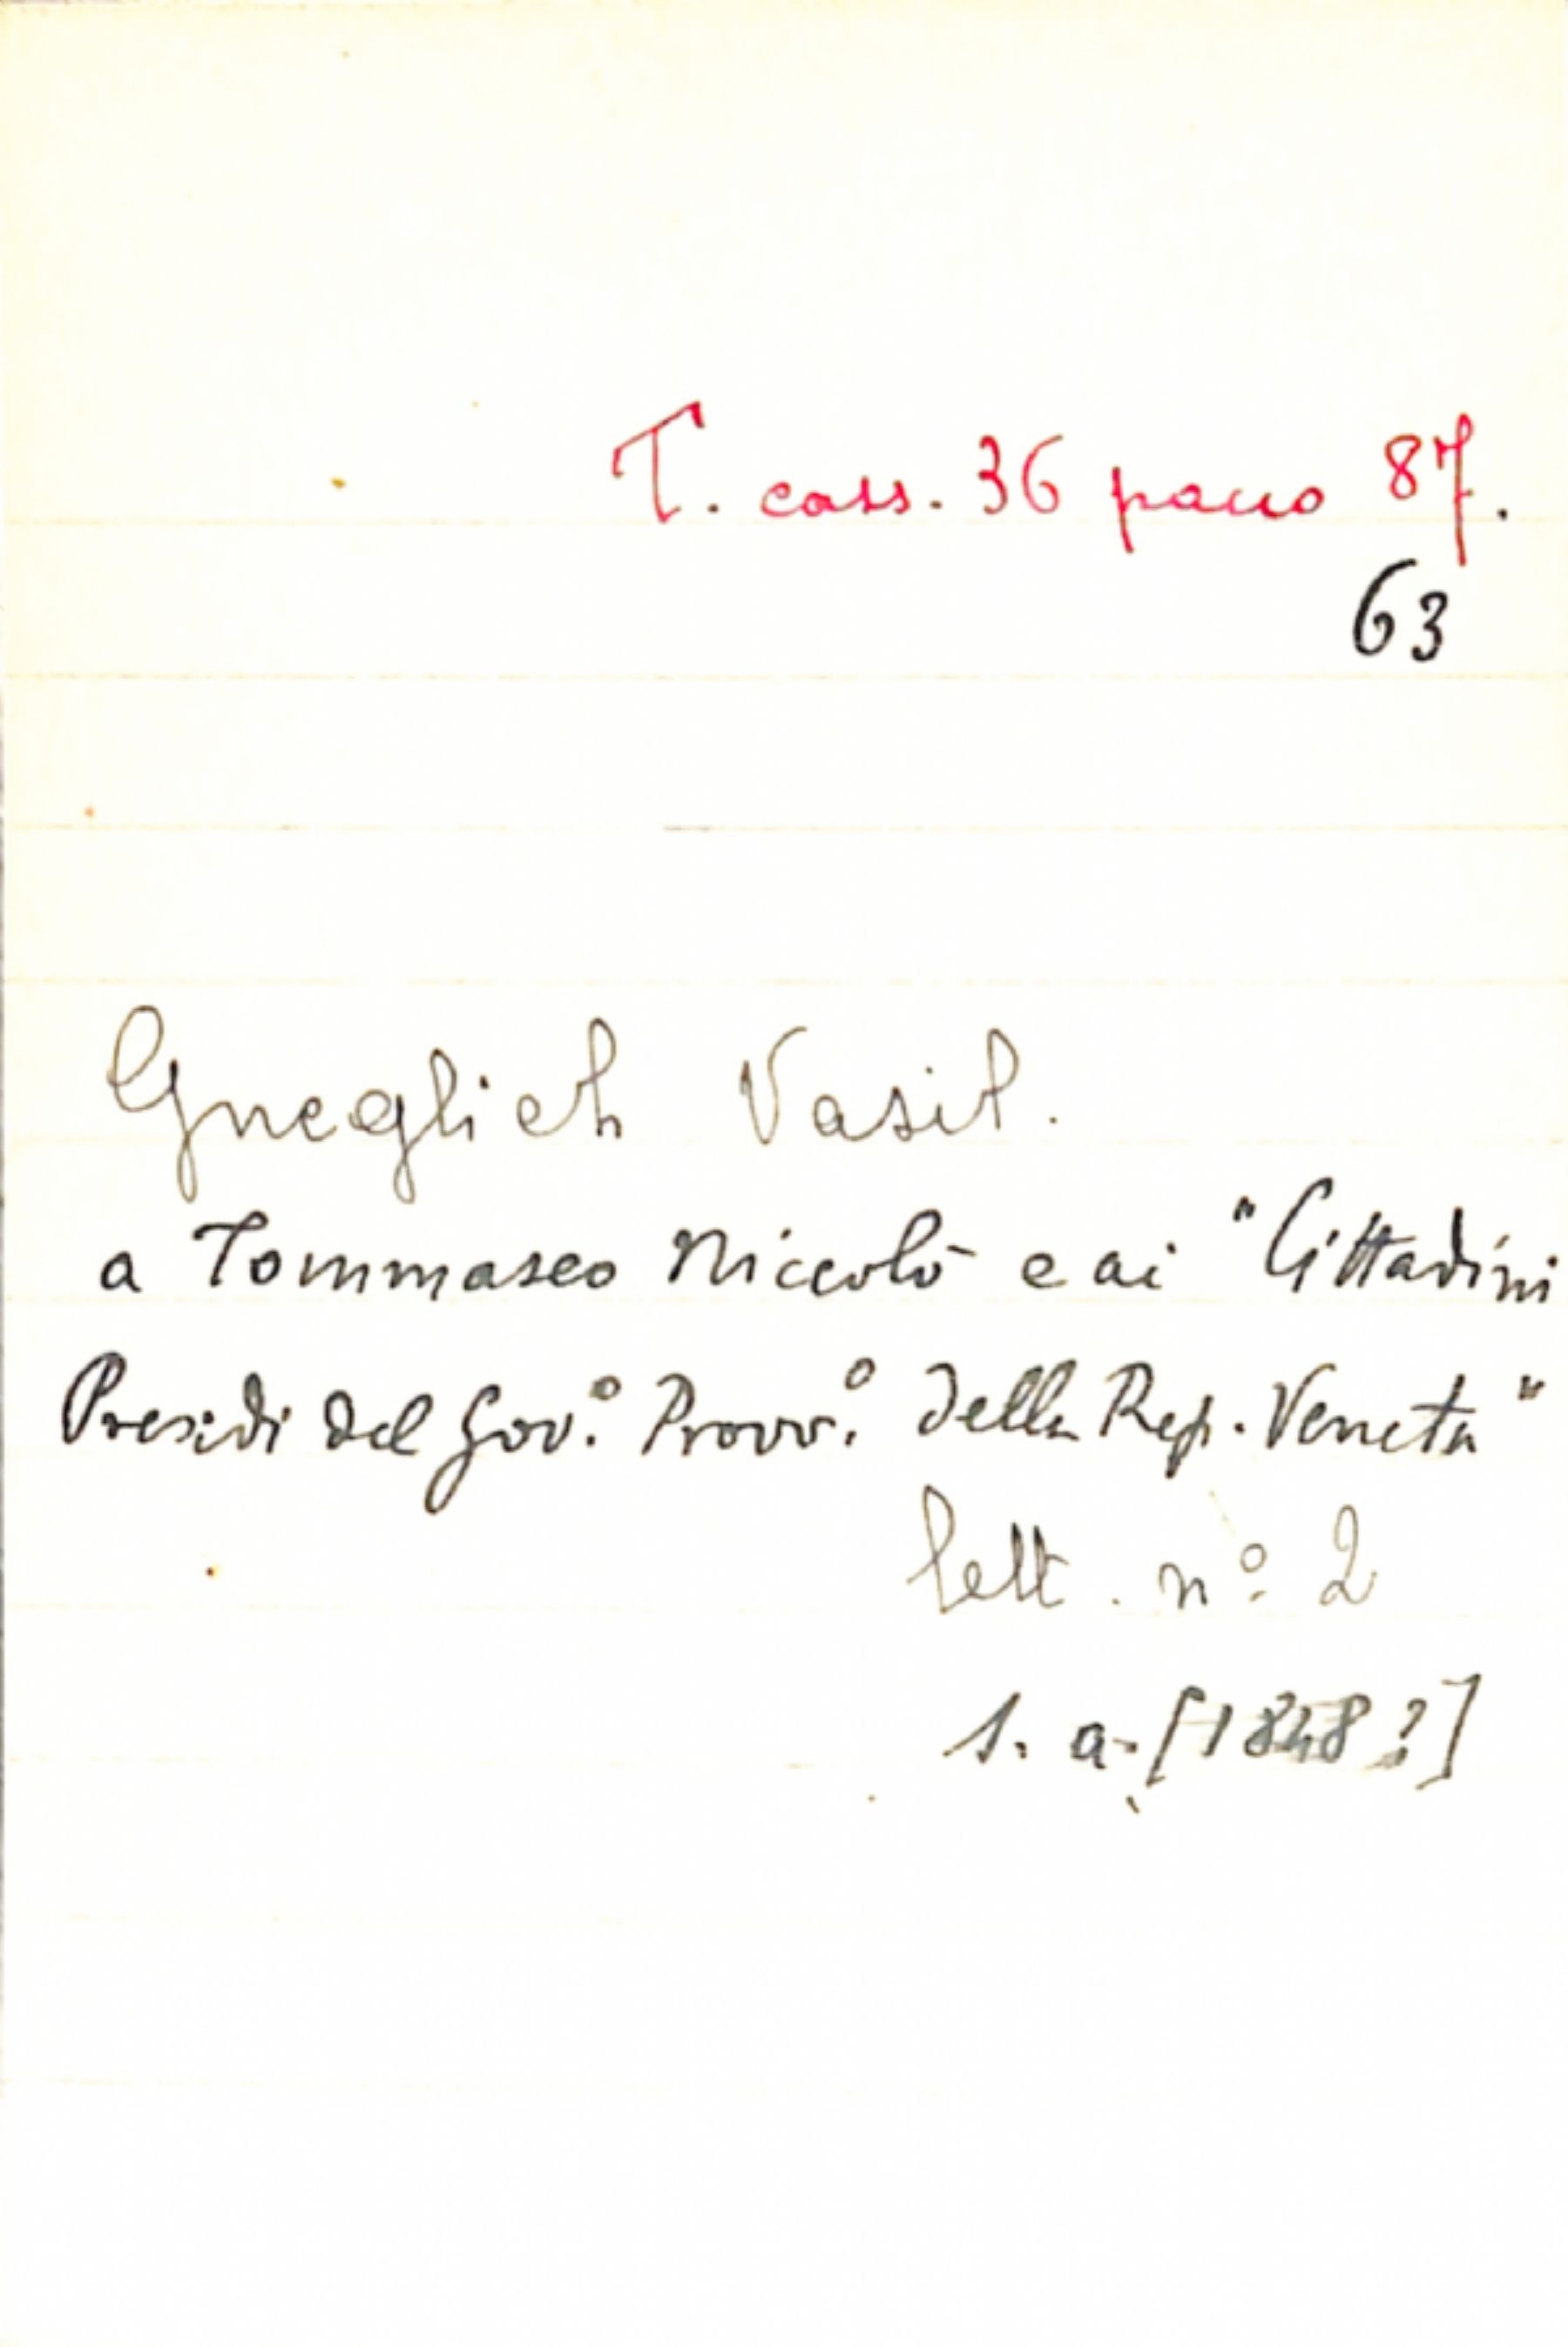 T. cass. 36 pacco 87.
63
Gneglich Vasil.
a Tommaseo Niccolò e ai "Cittadini
Presidi del Gov.º Provv.º della Rep. Veneta"
lett. nº 2
s. a. [1848?]